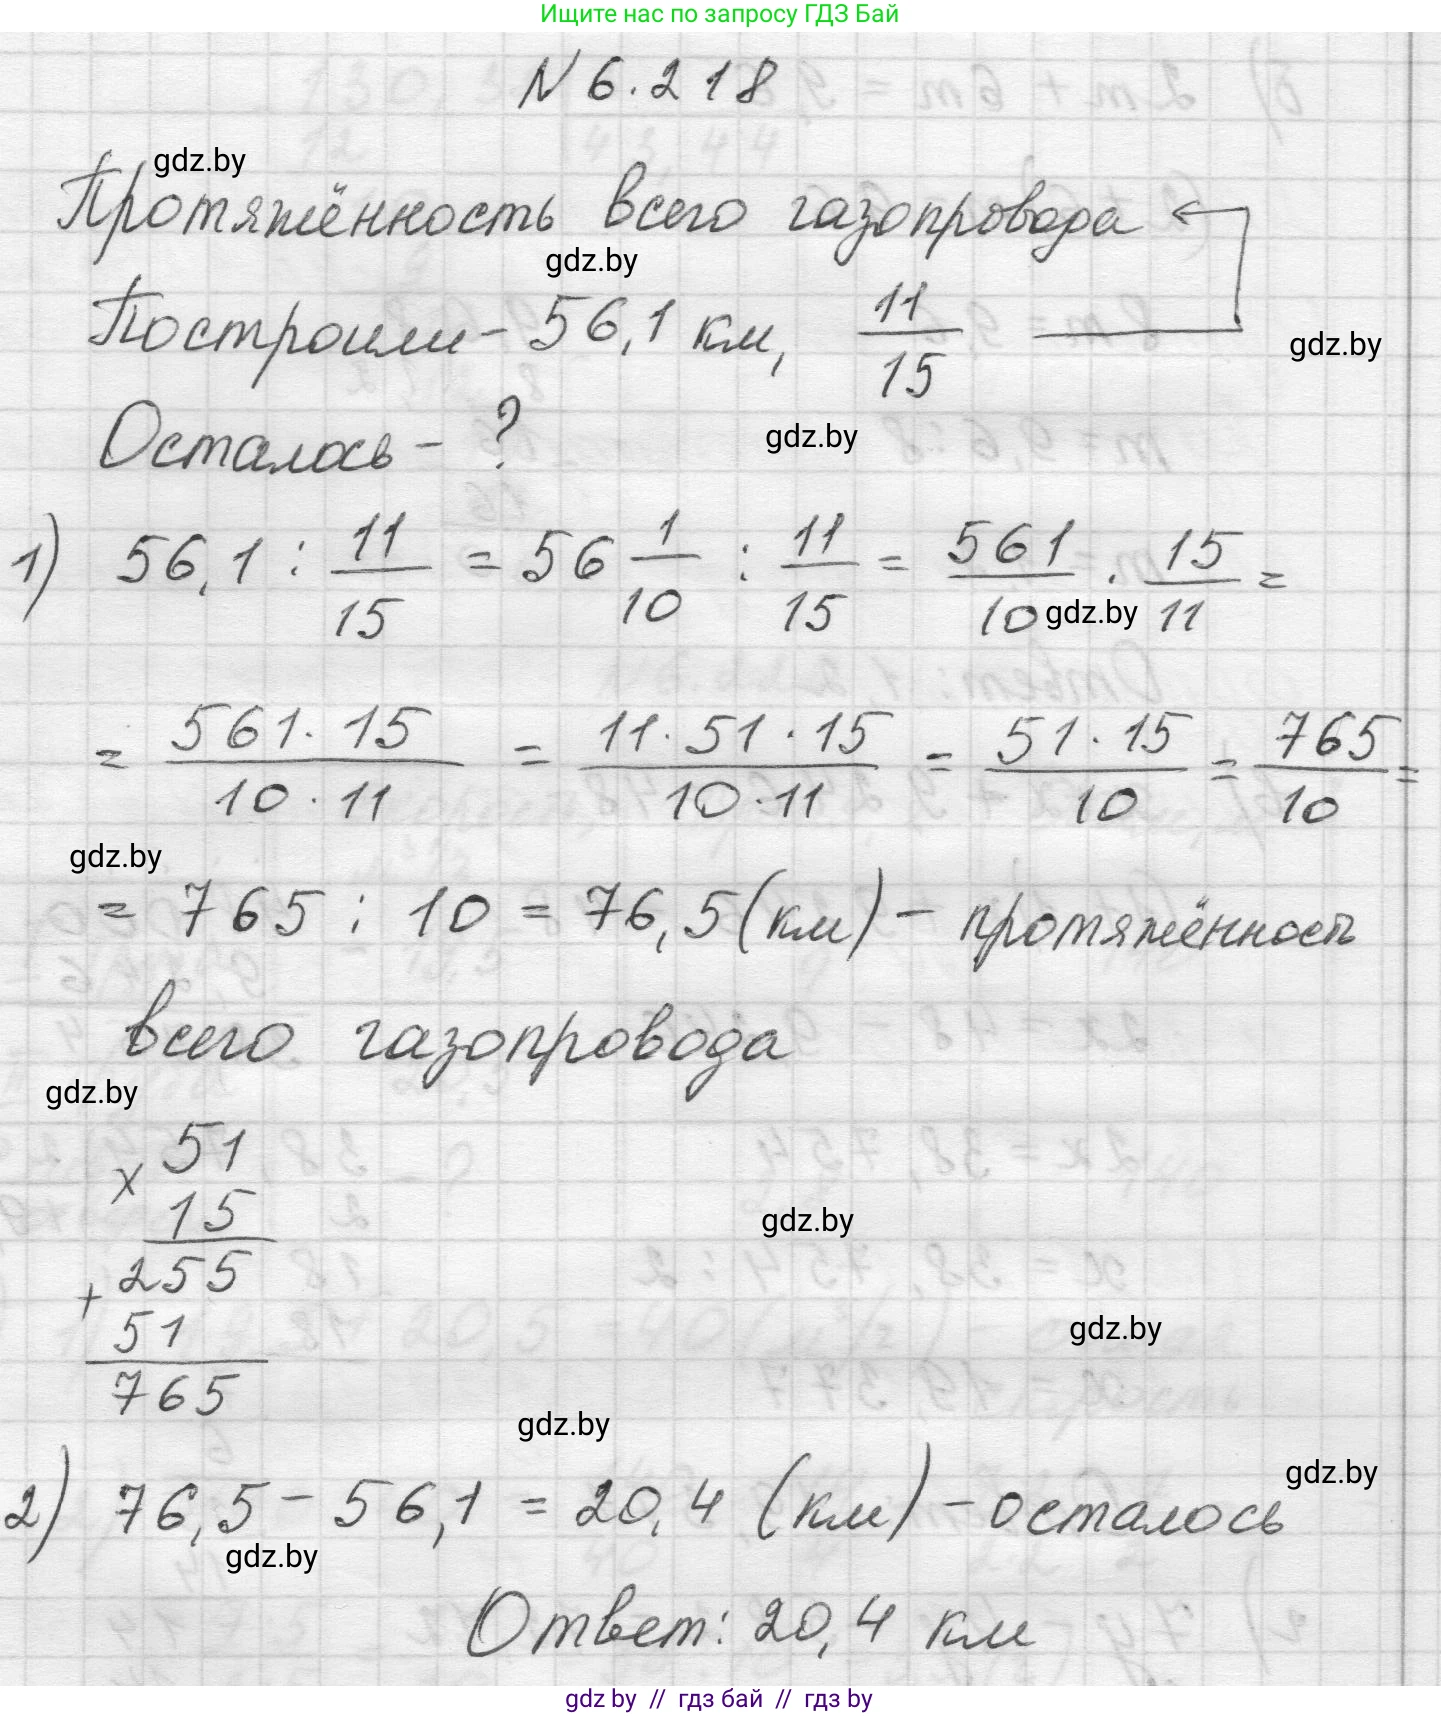 Ищите нас по запросу ГДЗ Бай
N 6.218
gdz.by
Протяжённость всего газопровода
gdz.by
Построили - 56,1 км, 11/15
gdz.by
Осталось - ?
gdz.by
1) 56,1 : 11/15 = 56 1/10 : 11/15 = 561/10 · 15/11 =
gdz.by
= 561 · 15 / 10 · 11 = 11 · 51 · 15 / 10 · 11 = 51 · 15 / 10 = 765/10 =
gdz.by
= 765 : 10 = 76,5 (км) - протяжённость
всего газопровода
gdz.by
× 51
15
gdz.by
+ 255
51
gdz.by
765
gdz.by
gdz.by
2) 76,5 - 56,1 = 20,4 (км) - осталось
gdz.by
Ответ: 20,4 км
gdz by // гдз бай // гдз by